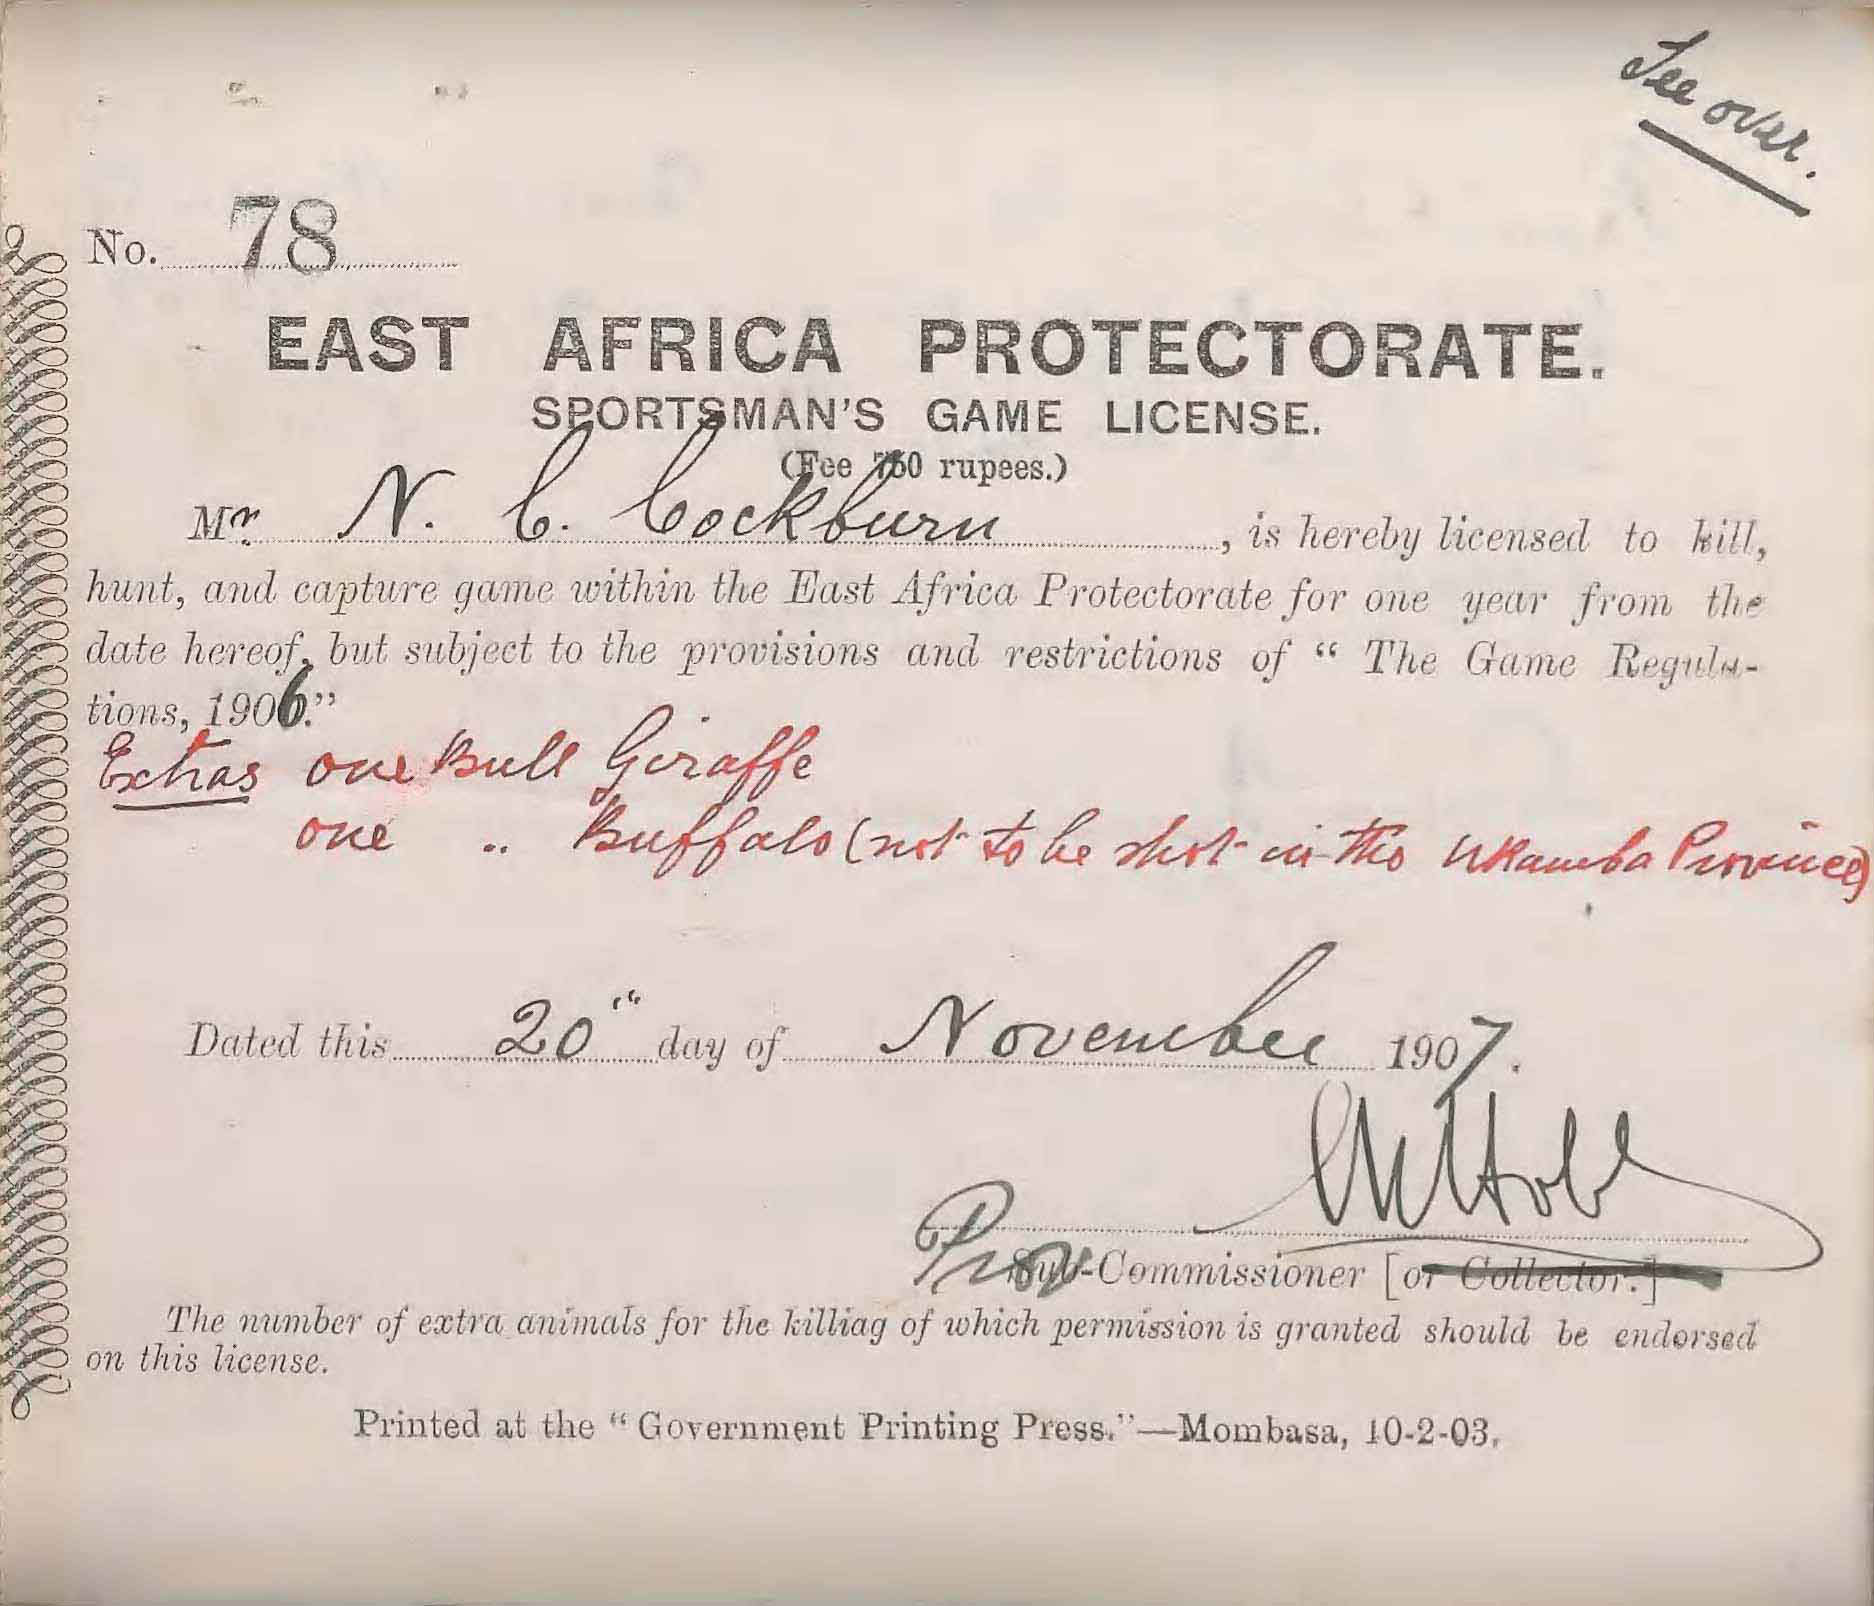 See over.
No. 78
EAST AFRICA PROTECTORATE.
SPORTSMAN'S GAME LICENSE.
(Fee 750 rupees.)
Mr. N. C. Cockburn, is hereby licensed to kill,
hunt, and capture game within the East Africa Protectorate for one year from the
date hereof, but subject to the provisions and restrictions of “ The Game Regula-
tions, 1906.”
Extras one Bull Giraffe
one " Buffalo (not to be shot in the Ukamba Province)
Dated this 20" day of November 1907.
Prov Sub-Commissioner [or Collector.]
The number of extra animals for the killiag of which permission is granted should be endorsed
on this license.
Printed at the “Government Printing Press.”—Mombasa, 10-2-03.